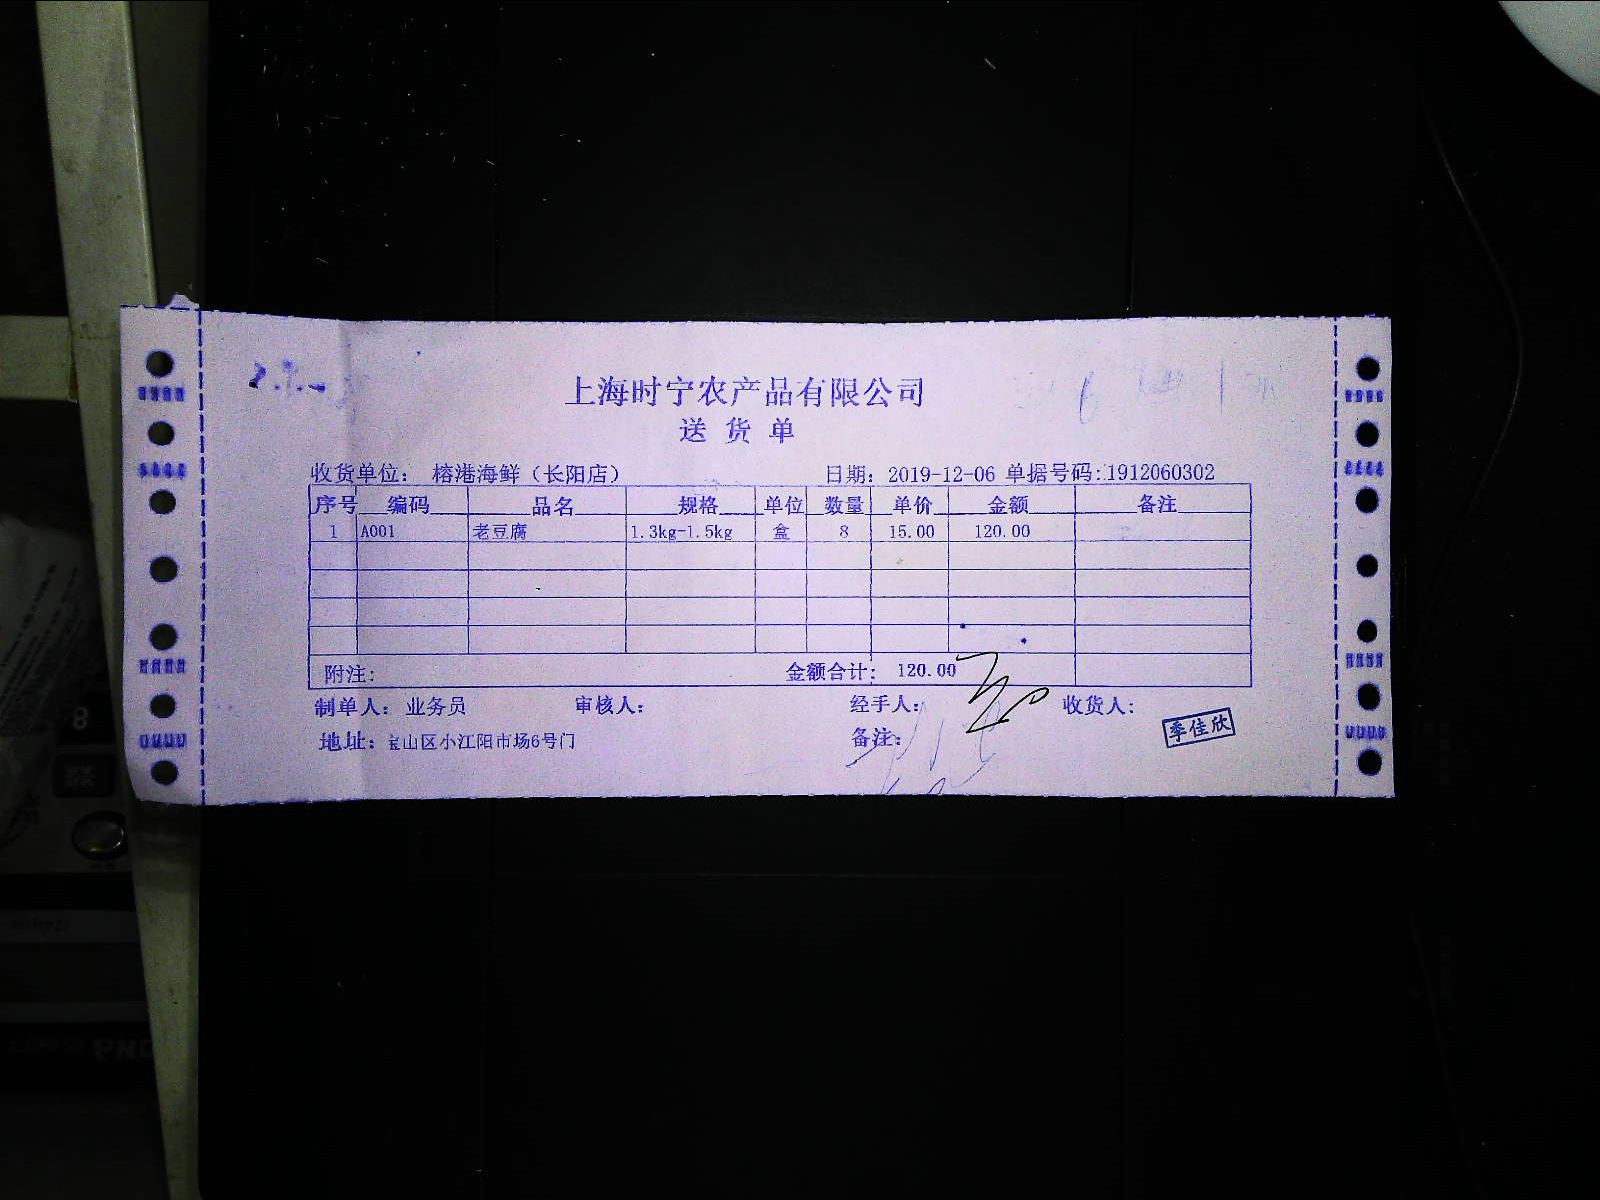 上海时宁农产品有限公司
送货单
收货单位: 榕港海鲜（长阳店） 日期: 2019-12-06 单据号码:1912060302
序号 编码 品名 规格 单位 数量 单价 金额 备注
1 A001 老豆腐 1.3kg-1.5kg 盒 8 15.00 120.00
附注: 金额合计: 120.00
制单人: 业务员 审核人: 经手人: 收货人:
季佳欣
地址: 宝山区小江阳市场6号门 备注: